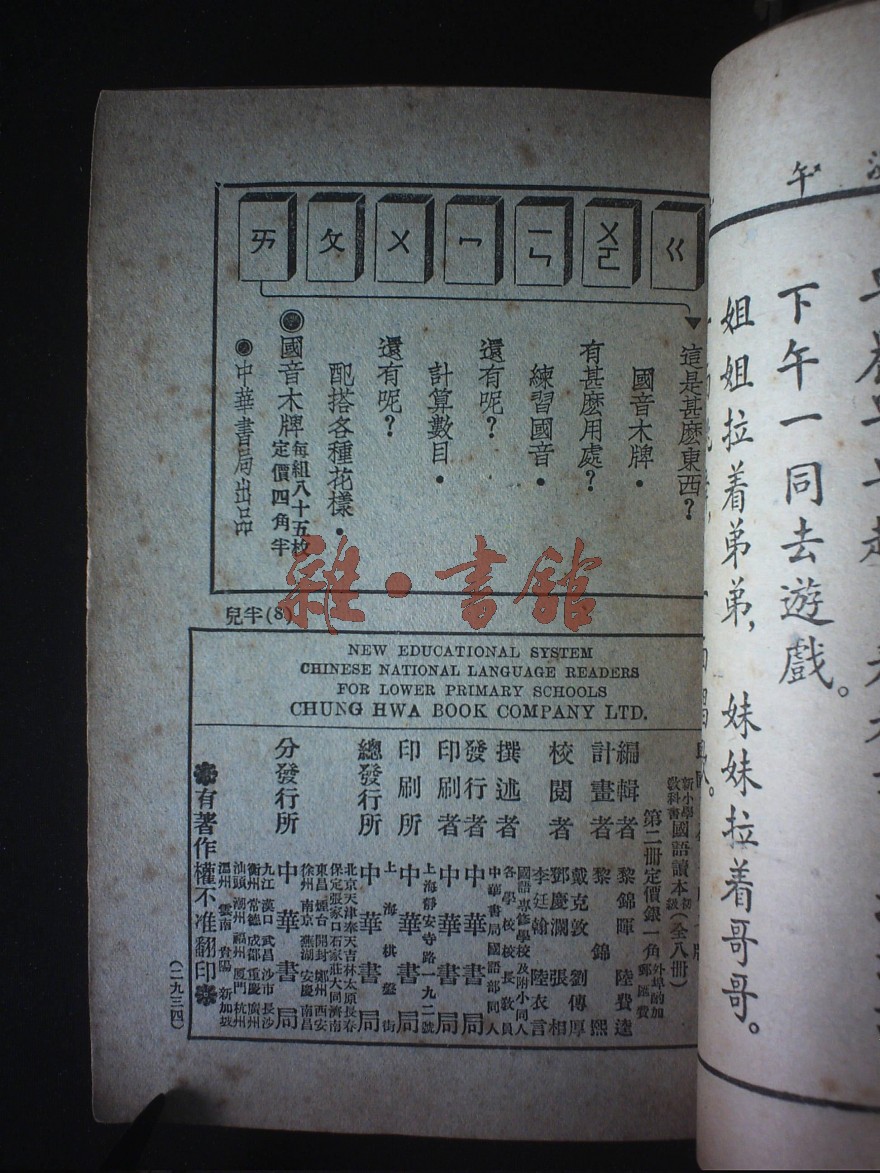 ㄍ
ㄨㄛ
ㄧㄣ
ㄇ
ㄨ
ㄆ
ㄞ
這是甚麽東西?
國音木牌.
有甚麽用處?
練習國音.
還有呢?
計算數目.
還有呢?
配搭各種花樣.
國音木牌 每組八十五枚 定價四角半
中華書局出品
兒半(8)
雜·書館
NEW EDUCATIONAL SYSTEM
CHINESE NATIONAL LANGUAGE READERS
FOR LOWER PRIMARY SCHOOLS
CHUNG HWA BOOK COMPANY LTD.
新小學教科書 國語讀本 初級 (全八冊)
第二冊定價銀一角 外埠酌加郵滙費
編輯者 黎錦暉 陸費逵
計畫者 黎錦熙
校閱者 戴克敦 劉傳厚 鄧慶瀾 張相 李廷翰 陸衣言
撰述者 國語專修學校及附小同人 各學校校長教員 中華書局國語部同人
發行者 中華書局
印刷者 中華書局
印刷所 上海靜安寺路一九二號 中華書局
總發行所 上海棋盤街 中華書局
分發行所 中華書局
北京 天津 奉天 吉林 太原 長春
保定 張家口 石家莊 大同 濟南
東昌 煙台 開封 鄭州 西安
徐州 南京 蕪湖 安慶 南昌
九江 漢口 武昌 沙市 長沙
衡州 常德 成都 重慶 廣州
汕頭 潮州 福州 厦門 杭州
溫州 雲南 貴陽 新加坡
有著作權不准翻印
(二九三四)
午
下午一同去遊戲。
姐姐拉着弟弟, 妹妹拉着哥哥。